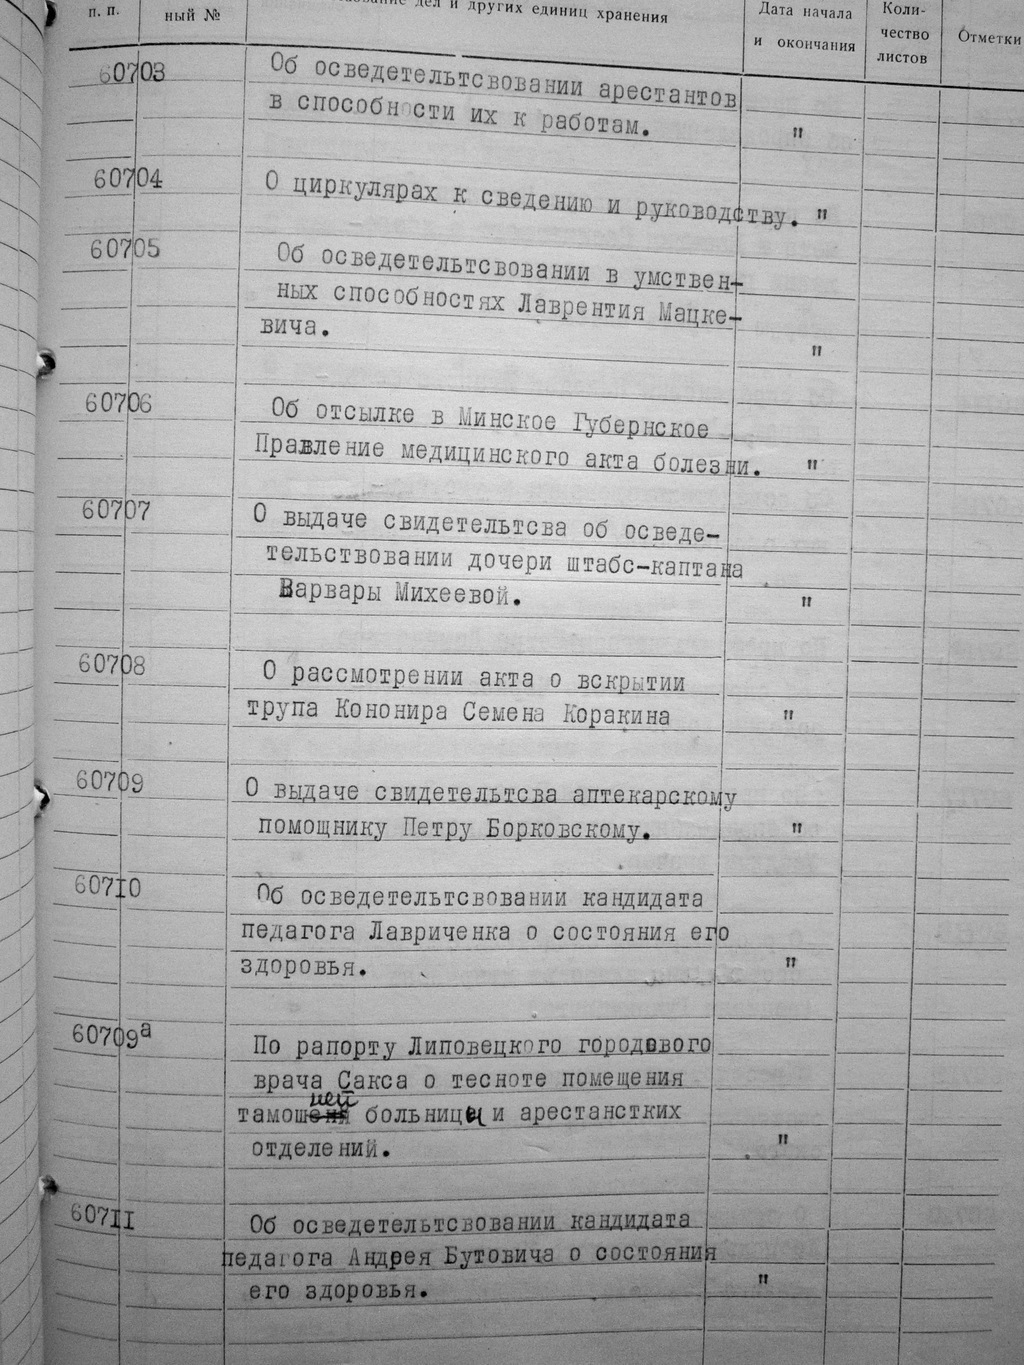 п. п.
ный №
дел и других единиц хранения
Дата начала
и окончания
Коли-
чество
листов
Отметки
60703
Об осведетельтсвовании арестантов
в способности их к работам. "
60704
О циркулярах к сведению и руководству. "
60705
Об осведетельтсвовании в умствен-
ных способностях Лаврентия Мацке-
вича. "
60706
Об отсылке в Минское Губернское
Правление медицинского акта болезни. "
60707
О выдаче свидетельтсва об осведе-
тельствовании дочери штабс-каптана
Варвары Михеевой. "
60708
О рассмотрении акта о вскрытии
трупа Кононира Семена Коракина "
60709
О выдаче свидетельтсва аптекарскому
помощнику Петру Борковскому. "
60710
Об осведетельтсвовании кандидата
педагога Лавриченка о состояния его
здоровья. "
60709а
По рапорту Липовецкого городового
врача Сакса о тесноте помещения
тамошней больницы и арестанстких
отделений. "
60711
Об осведетельтсвовании кандидата
педагога Андрея Бутовича о состояния
его здоровья. "